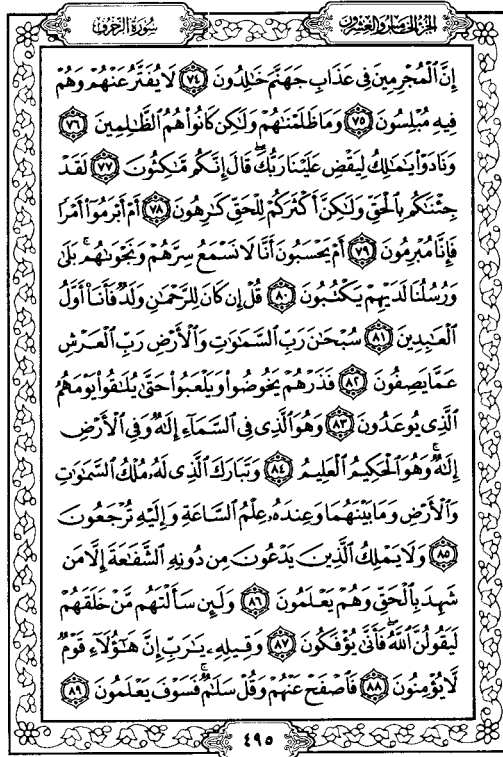 سُورَةُ الزُّخْرُفِ الجُزْءُ الخَامِسُ وَالعِشْرُونَ
إِنَّ ٱلْمُجْرِمِينَ فِى عَذَابِ جَهَنَّمَ خَٰلِدُونَ ٧٤ لَا يُفَتَّرُ عَنْهُمْ وَهُمْ
فِيهِ مُبْلِسُونَ ٧٥ وَمَا ظَلَمْنَٰهُمْ وَلَٰكِن كَانُوا۟ هُمُ ٱلظَّٰلِمِينَ ٧٦
وَنَادَوْا۟ يَٰمَٰلِكُ لِيَقْضِ عَلَيْنَا رَبُّكَ ۖ قَالَ إِنَّكُم مَّٰكِثُونَ ٧٧ لَقَدْ
جِئْنَٰكُم بِٱلْحَقِّ وَلَٰكِنَّ أَكْثَرَكُمْ لِلْحَقِّ كَٰرِهُونَ ٧٨ أَمْ أَبْرَمُوٓا۟ أَمْرًا
فَإِنَّا مُبْرِمُونَ ٧٩ أَمْ يَحْسَبُونَ أَنَّا لَا نَسْمَعُ سِرَّهُمْ وَنَجْوَىٰهُم ۚ بَلَىٰ
وَرُسُلُنَا لَدَيْهِمْ يَكْتُبُونَ ٨٠ قُلْ إِن كَانَ لِلرَّحْمَٰنِ وَلَدٌ فَأَنَا۠ أَوَّلُ
ٱلْعَٰبِدِينَ ٨١ سُبْحَٰنَ رَبِّ ٱلسَّمَٰوَٰتِ وَٱلْأَرْضِ رَبِّ ٱلْعَرْشِ
عَمَّا يَصِفُونَ ٨٢ فَذَرْهُمْ يَخُوضُوا۟ وَيَلْعَبُوا۟ حَتَّىٰ يُلَٰقُوا۟ يَوْمَهُمُ
ٱلَّذِى يُوعَدُونَ ٨٣ وَهُوَ ٱلَّذِى فِى ٱلسَّمَآءِ إِلَٰهٌ وَفِى ٱلْأَرْضِ
إِلَٰهٌ ۚ وَهُوَ ٱلْحَكِيمُ ٱلْعَلِيمُ ٨٤ وَتَبَارَكَ ٱلَّذِى لَهُۥ مُلْكُ ٱلسَّمَٰوَٰتِ
وَٱلْأَرْضِ وَمَا بَيْنَهُمَا وَعِندَهُۥ عِلْمُ ٱلسَّاعَةِ وَإِلَيْهِ تُرْجَعُونَ
٨٥ وَلَا يَمْلِكُ ٱلَّذِينَ يَدْعُونَ مِن دُونِهِ ٱلشَّفَٰعَةَ إِلَّا مَن
شَهِدَ بِٱلْحَقِّ وَهُمْ يَعْلَمُونَ ٨٦ وَلَئِن سَأَلْتَهُم مَّنْ خَلَقَهُمْ
لَيَقُولُنَّ ٱللَّهُ ۖ فَأَنَّىٰ يُؤْفَكُونَ ٨٧ وَقِيلِهِۦ يَٰرَبِّ إِنَّ هَٰٓؤُلَآءِ قَوْمٌ
لَّا يُؤْمِنُونَ ٨٨ فَٱصْفَحْ عَنْهُمْ وَقُلْ سَلَٰمٌ ۚ فَسَوْفَ يَعْلَمُونَ ٨٩
٤٩٥